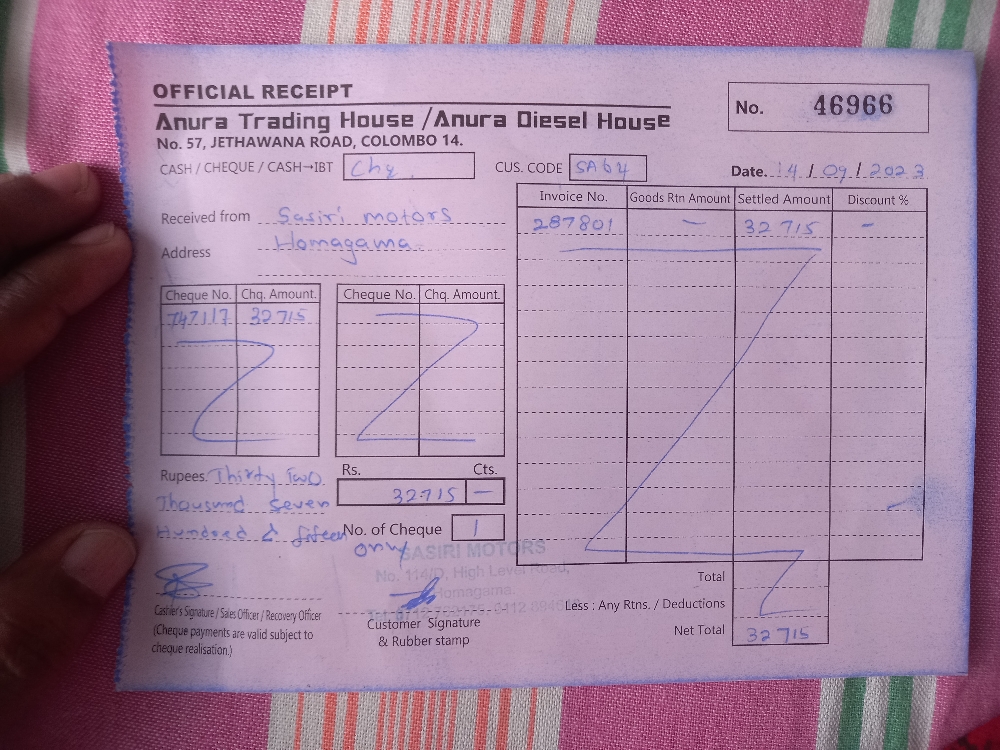 OFFICIAL RECEIPT
No. 46966
Anura Trading House /Anura Diesel House
No. 57, JETHAWANA ROAD, COLOMBO 14.
CASH / CHEQUE / CASH→IBT Chq CUS. CODE SA64 Date. 14 / 09 / 2023
Invoice No. Goods Rtn Amount Settled Amount Discount %
287801 — 32715 –
Received from Sasiri motors
Address Homagama
Cheque No. Chq. Amount. Cheque No. Chq. Amount.
747117 32715
Rupees. Thirty Two
Thousand Seven
Hundred & fifteen
only
Rs. Cts.
32715 —
No. of Cheque 1
SASIRI MOTORS
No. 114/D, High Level Road,
Homagama.
Cashier's Signature / Sales Officer / Recovery Officer
(Cheque payments are valid subject to
cheque realisation.)
Customer Signature
& Rubber stamp
Total
Less : Any Rtns. / Deductions
Net Total 32715